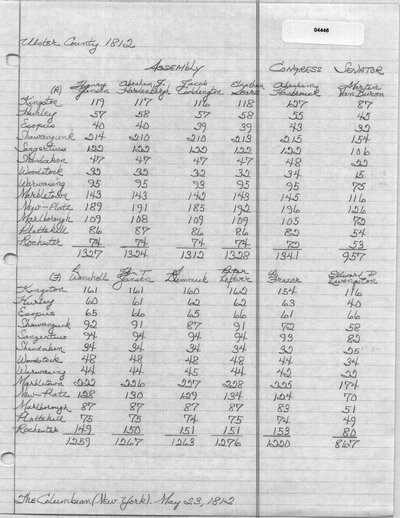 04446
Ulster County 1812
Assembly Congress Senator
(R) Henry Jansen Abraham J. Hardenbergh Jacob Coddington Elnathan Sears Abraham Hasbrouck Martin Van Buren
Kingston 119 117 116 118 127 87
Hurley 57 58 57 58 55 45
Esopus 40 40 39 39 43 32
Shawangunk 214 210 210 213 215 154
Saugerties 122 122 122 122 122 106
Shandaken 47 47 47 47 48 22
Woodstock 32 32 32 32 34 15
Wawarsing 95 95 93 95 95 75
Marbletown 143 143 142 143 145 116
New-Paltz 189 191 185 192 196 126
Marlborough 109 108 109 109 105 72
Plattekill 86 87 86 86 82 54
Rochester 74 74 74 74 72 53
1327 1324 1312 1328 1341 957
(F) Wanshell T. Jansen Dummick Peter Lefever Frazer Edward P. Livingston
Kingston 161 161 160 162 154 116
Hurley 60 61 62 62 63 40
Esopus 65 66 65 66 61 66
Shawangunk 92 91 87 91 72 58
Saugerties 94 94 94 94 93 82
Shandaken 34 34 34 34 32 25
Woodstock 48 48 48 48 44 34
Wawarsing 44 44 45 44 42 22
Marbletown 222 226 227 228 225 174
New-Paltz 128 130 129 134 124 70
Marlborough 87 87 87 87 83 51
Plattekill 75 75 74 75 74 49
Rochester 149 150 151 151 153 80
1259 1267 1263 1276 1220 867
The Columbian (New York). May 23, 1812